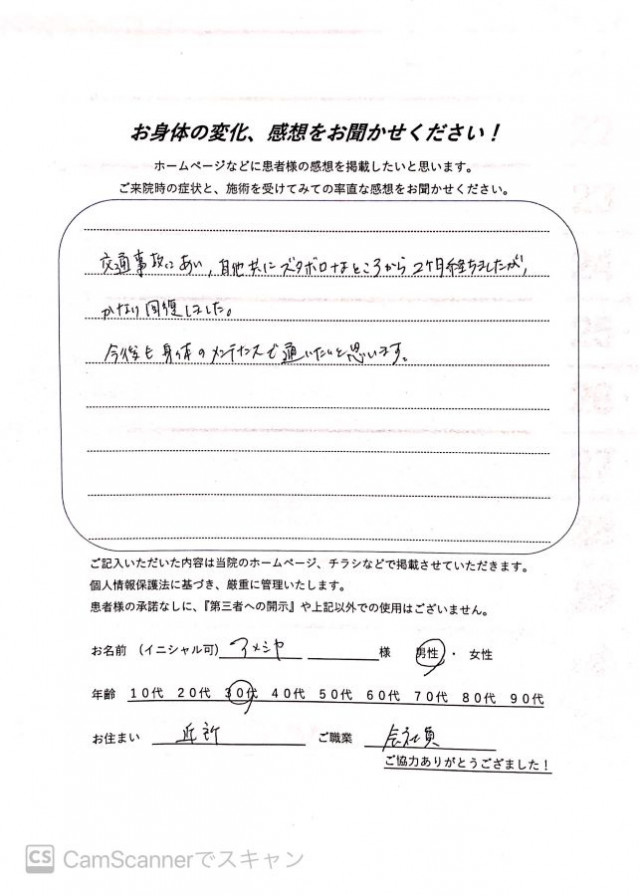 お身体の変化、感想をお聞かせください！
ホームページなどに患者様の感想を掲載したいと思います。
ご来院時の症状と、施術を受けてみての率直な感想をお聞かせください。
交通事故にあい、自他共にズタボロなところから2ケ月経ちましたが、
かなり回復しました。
今後も身体のメンテナンスで通いたいと思います。
ご記入いただいた内容は当院のホームページ、チラシなどで掲載させていただきます。
個人情報保護法に基づき、厳重に管理いたします。
患者様の承諾なしに、『第三者への開示』や上記以外での使用はございません。
お名前 （イニシャル可） アメシヤ 様 男性 ・ 女性
年齢 10代 20代 30代 40代 50代 60代 70代 80代 90代
お住まい 近所 ご職業 会社員
ご協力ありがとうござました！
CS CamScannerでスキャン